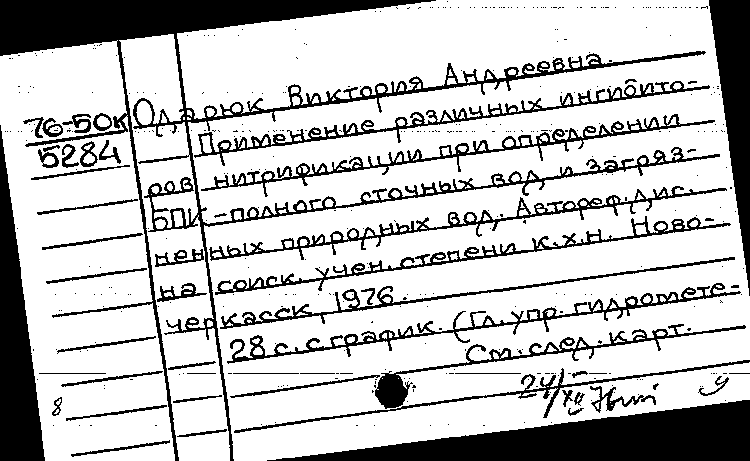 Одарюк, Виктория Андреевна.
76-50к Применение различных ингибито-
5284
ров нитрификации при определении
БПК-полного сточных вод и загряз-
ненных природных вод. Автореф. дис.
на соиск. учен. степени к.х.н. Ново-
черкасск, 1976.
28 с. с график. (Гл. упр. гидромете-
См. след. карт.
24/XII
8